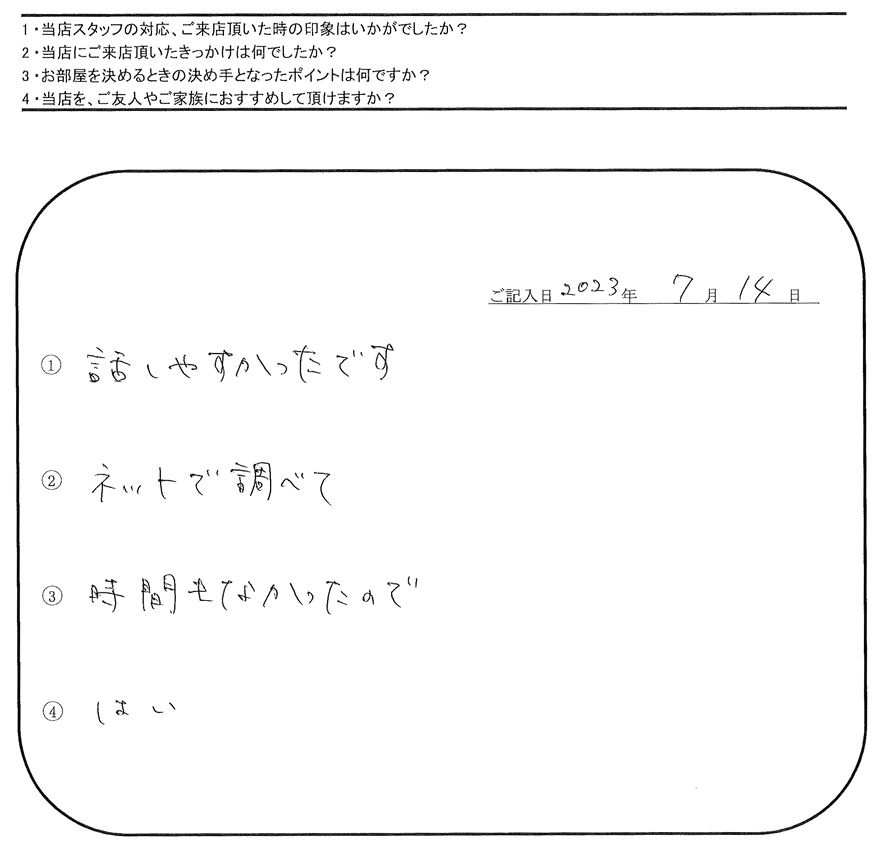 1・当店スタッフの対応、ご来店頂いた時の印象はいかがでしたか？
2・当店にご来店頂いたきっかけは何でしたか？
3・お部屋を決めるときの決め手となったポイントは何ですか？
4・当店を、ご友人やご家族におすすめして頂けますか？
ご記入日 2023年 7月 14日
① 話しやすかったです
② ネットで調べて
③ 時間もなかったので
④ はい